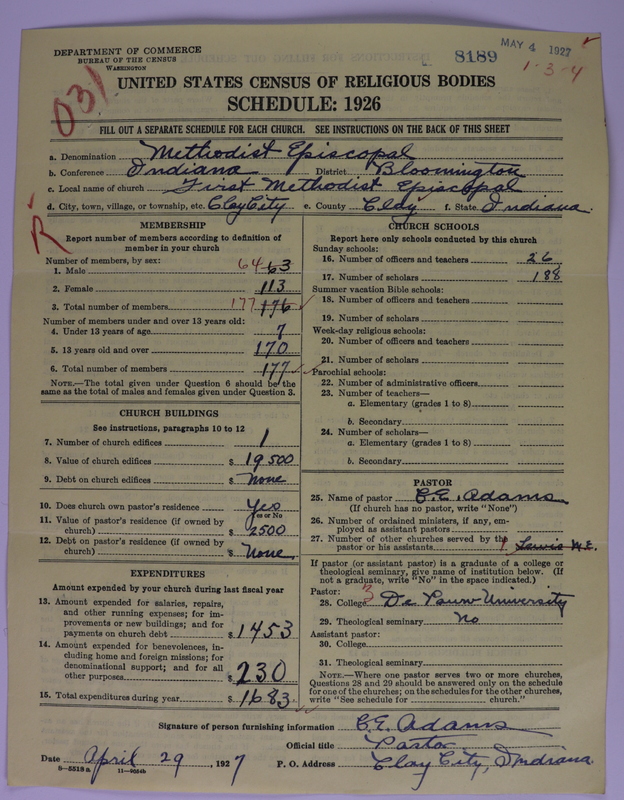 DEPARTMENT OF COMMERCE
BUREAU OF THE CENSUS
WASHINGTON
8189
MAY 4 1927
1-3-4
031
UNITED STATES CENSUS OF RELIGIOUS BODIES
SCHEDULE: 1926
FILL OUT A SEPARATE SCHEDULE FOR EACH CHURCH. SEE INSTRUCTIONS ON THE BACK OF THIS SHEET
a. Denomination Methodist Episcopal
b. Conference Indiana District Bloomington
c. Local name of church First Methodist Episcopal
d. City, town, village, or township, etc. Clay City e. County Clay f. State Indiana
R
MEMBERSHIP
Report number of members according to definition of
member in your church
Number of members, by sex:
1. Male 64 63
2. Female 113
3. Total number of members 177 176
Number of members under and over 13 years old:
4. Under 13 years of age 7
5. 13 years old and over 170
6. Total number of members 177
NOTE.—The total given under Question 6 should be the
same as the total of males and females given under Question 3.
CHURCH BUILDINGS
See instructions, paragraphs 10 to 12
7. Number of church edifices 1
8. Value of church edifices $ 19500
9. Debt on church edifices $ None
10. Does church own pastor's residence Yes
Yes or No
11. Value of pastor's residence (if owned by
church) $ 2500
12. Debt on pastor's residence (if owned by
church) $ None
EXPENDITURES
Amount expended by your church during last fiscal year
13. Amount expended for salaries, repairs,
and other running expenses; for im-
provements or new buildings; and for
payments on church debt $ 1453
14. Amount expended for benevolences, in-
cluding home and foreign missions; for
denominational support; and for all
other purposes $ 230
15. Total expenditures during year $ 1683
CHURCH SCHOOLS
Report here only schools conducted by this church
Sunday schools:
16. Number of officers and teachers 26
17. Number of scholars 188
Summer vacation Bible schools:
18. Number of officers and teachers
19. Number of scholars
Week-day religious schools:
20. Number of officers and teachers
21. Number of scholars
Parochial schools:
22. Number of administrative officers
23. Number of teachers—
a. Elementary (grades 1 to 8)
b. Secondary
24. Number of scholars—
a. Elementary (grades 1 to 8)
b. Secondary
PASTOR
25. Name of pastor C.E. Adams
(If church has no pastor, write "None")
26. Number of ordained ministers, if any, em-
ployed as assistant pastors
27. Number of other churches served by the
pastor or his assistants 1 Lewis M.E.
If pastor (or assistant pastor) is a graduate of a college or
theological seminary, give name of institution below. (If
not a graduate, write "No" in the space indicated.)
Pastor:
28. College 3 De Pauw University
29. Theological seminary No
Assistant pastor:
30. College
31. Theological seminary
NOTE.—Where one pastor serves two or more churches,
Questions 28 and 29 should be answered only on the schedule
for one of the churches; on the schedules for the other churches,
write "See schedule for church."
Signature of person furnishing information C.E. Adams
Official title Pastor
Date April 29, 1927 P. O. Address Clay City, Indiana